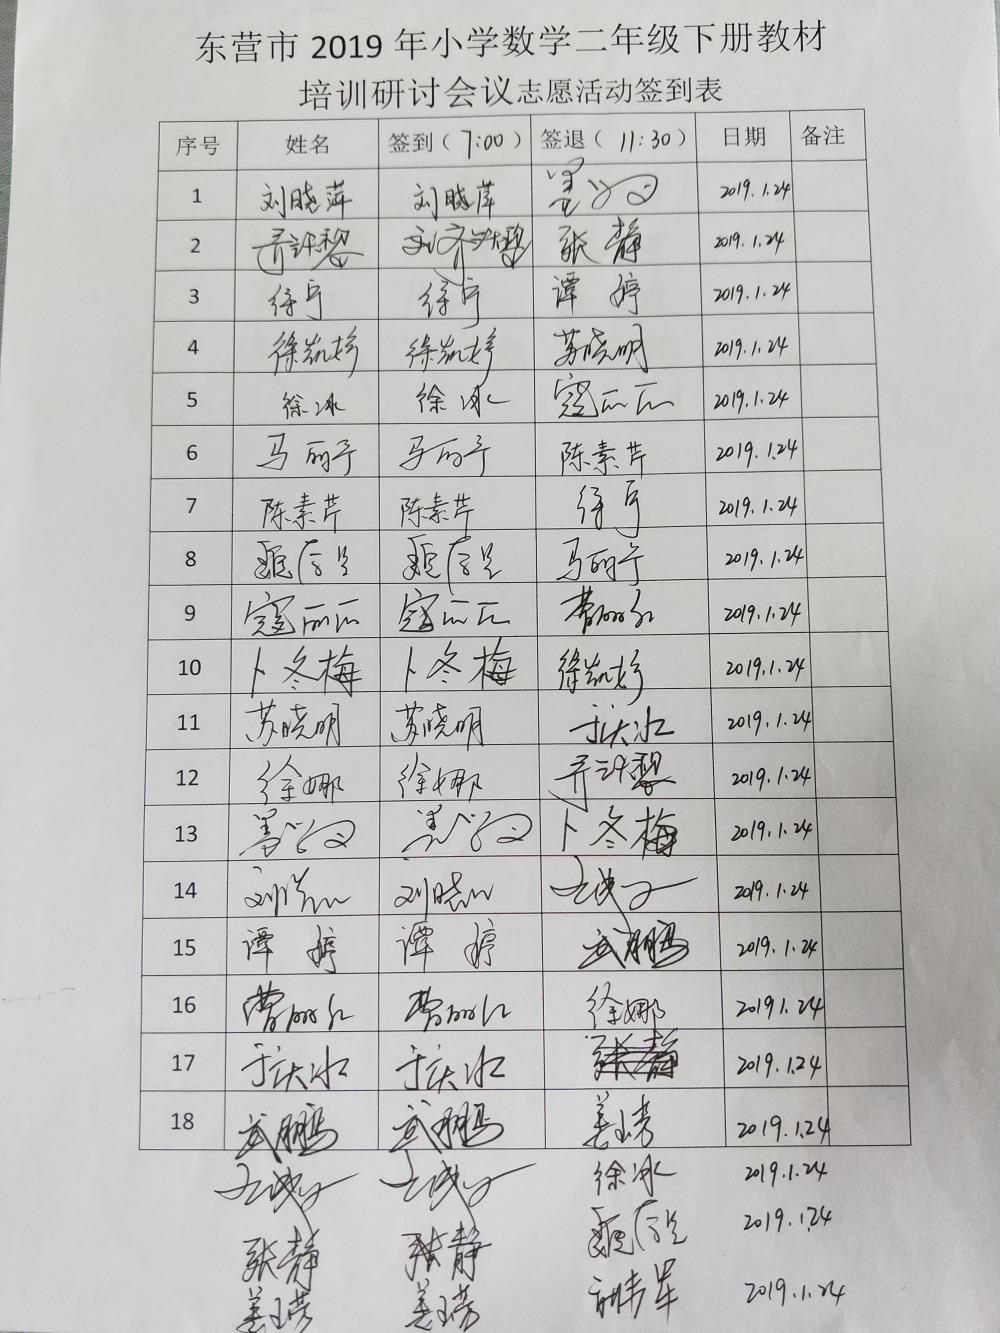 东营市 2019 年小学数学二年级下册教材
培训研讨会议志愿活动签到表
序号 姓名 签到（7:00） 签退（11:30） 日期 备注
1 刘晓萍 刘晓萍 2019.1.24
2 张静 2019.1.24
3 徐宁 徐宁 谭婷 2019.1.24
4 徐凯婷 徐凯婷 苏晓明 2019.1.24
5 徐冰 徐冰 寇丽丽 2019.1.24
6 马丽宁 马丽宁 陈素芹 2019.1.24
7 陈素芹 陈素芹 徐宁 2019.1.24
8 马丽宁 2019.1.24
9 寇丽丽 寇丽丽 2019.1.24
10 卜冬梅 卜冬梅 徐凯婷 2019.1.24
11 苏晓明 苏晓明 于庆冰 2019.1.24
12 徐娜 徐娜 2019.1.24
13 卜冬梅 2019.1.24
14 2019.1.24
15 谭婷 谭婷 武鹏 2019.1.24
16 徐娜 2019.1.24
17 于庆冰 于庆冰 张静 2019.1.24
18 武鹏 武鹏 2019.1.24
徐冰 2019.1.24
2019.1.24
张静 张静
2019.1.24